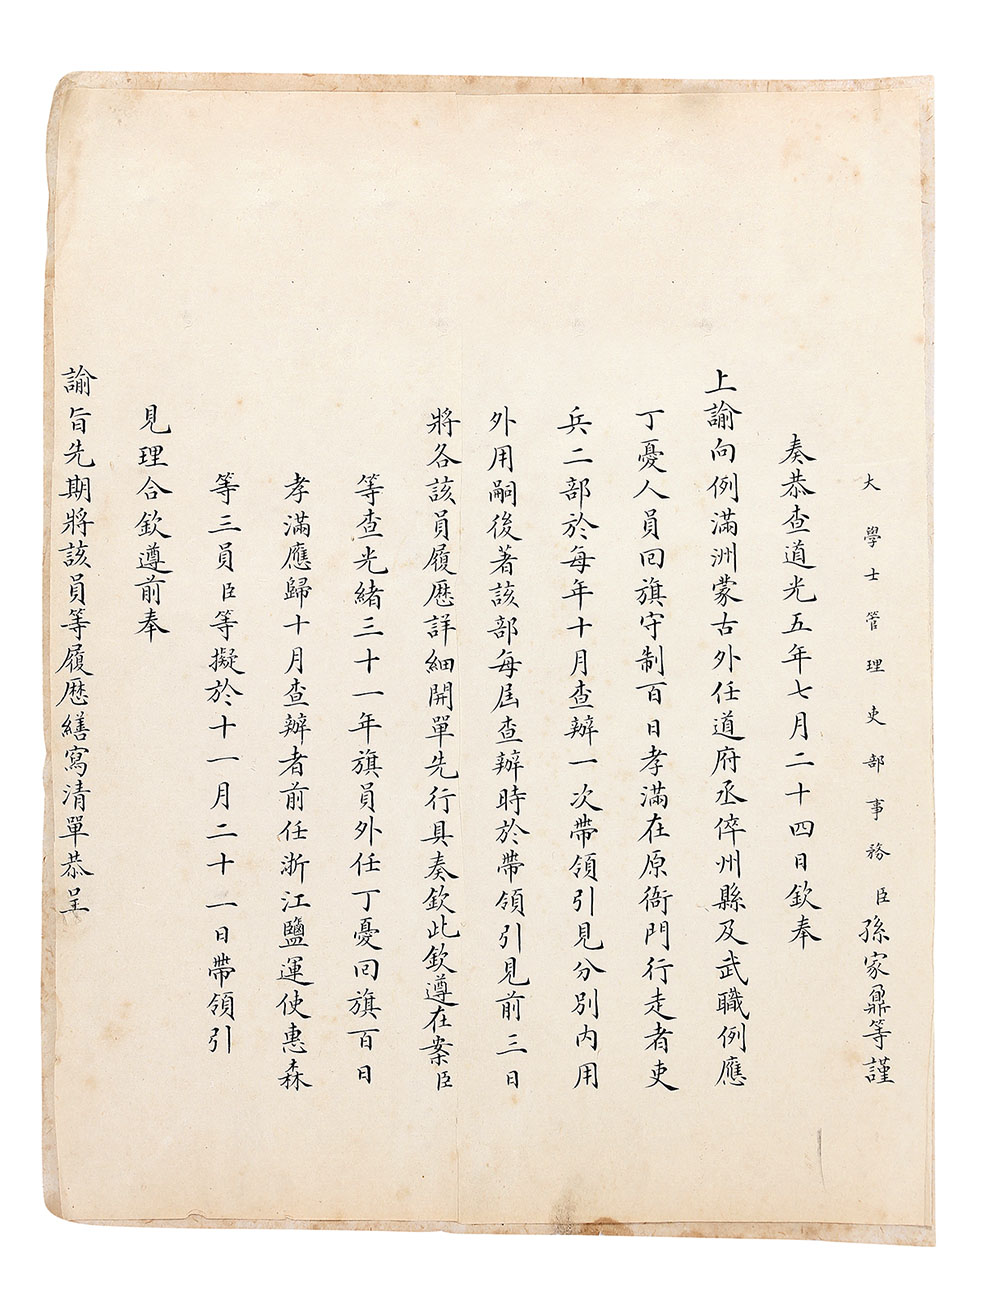 大學士管理吏部事務臣孫家鼐等謹
奏恭查道光五年七月二十四日欽奉
上諭向例滿洲蒙古外任道府丞倅州縣及武職例應
丁憂人員回旗守制百日孝滿在原衙門行走者吏
兵二部於每年十月查辦一次帶領引見分別內用
外用嗣後著該部每屆查辦時於帶領引見前三日
將各該員履歷詳細開單先行具奏欽此欽遵在案臣
等查光緒三十一年旗員外任丁憂回旗百日
孝滿應歸十月查辦者前任浙江鹽運使惠森
等三員臣等擬於十一月二十一日帶領引
見理合欽遵前奉
諭旨先期將該員等履歷繕寫清單恭呈